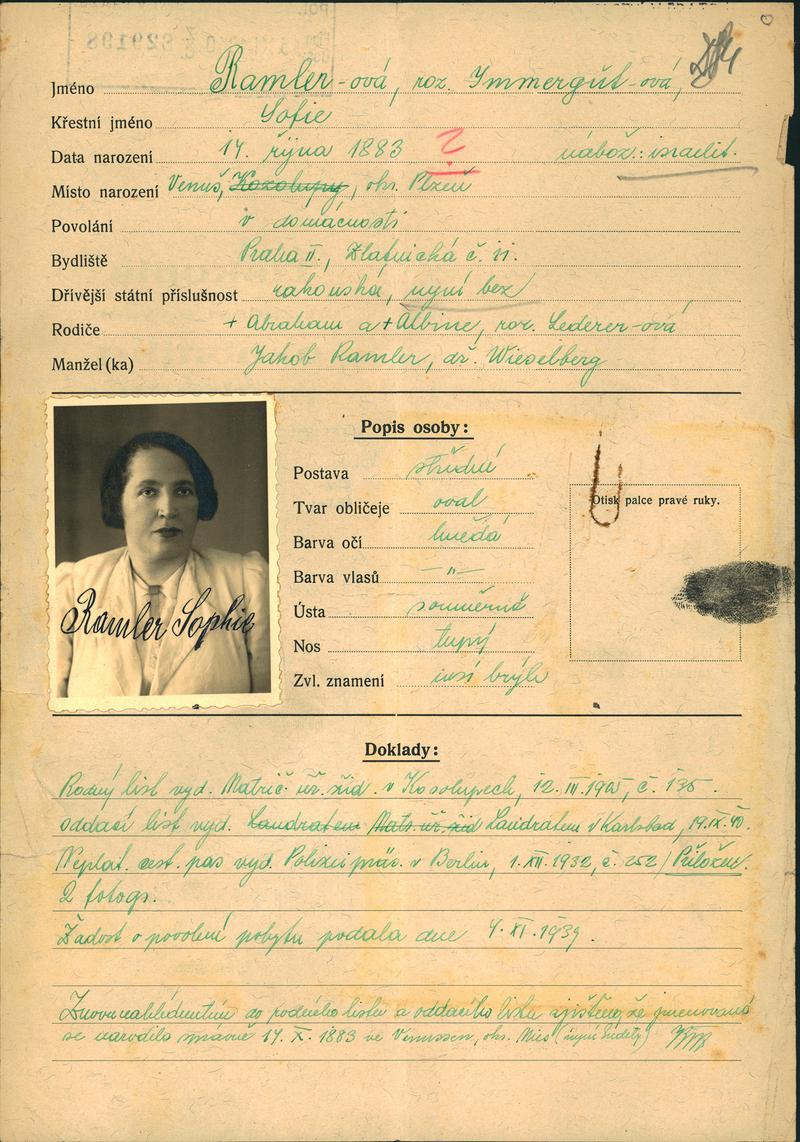 829198
Jméno Ramler-ová, roz. Immergut-ová,
Křestní jméno Sofie
Data narození 14. října 1883 ? nábož: israelit.
Místo narození Venuš, Kozolupy, okr. Plzeň
Povolání v domácnosti
Bydliště Praha II., Zlatnická č. 11.
Dřívější státní příslušnost rakouská, nyní bez
Rodiče + Abraham a + Albine, roz. Lederer-ová
Manžel (ka) Jakob Ramler, dř. Wieselberg
Popis osoby:
Postava střední
Tvar obličeje oval
Barva očí hnědá
Barva vlasů —"—
Ústa souměrná
Nos tupý
Zvl. znamení nosí brýle
Otisk palce pravé ruky.
Ramler Sophie
Doklady:
Rodný list vyd. Matrič. úř. žid. v Kosolupech, 12. III. 1905, č. 135.
oddací list vyd. Landratem Matr. úř. žid Landratem v Karlsbad, 19. IX. 40.
Neplat. cest. pas vyd. Polizeipräs. v Berlin, 1. XII. 1932, č. 252 / Přiložen.
2 fotogr.
Žádost o povolení pobytu podala dne 4. XI. 1939.
do rodného listu a oddacího listu zjištěno, že jmenovaná
se narodila správně 14. X. 1883 ve Venussen, okr. Mies (nyní Sudety)